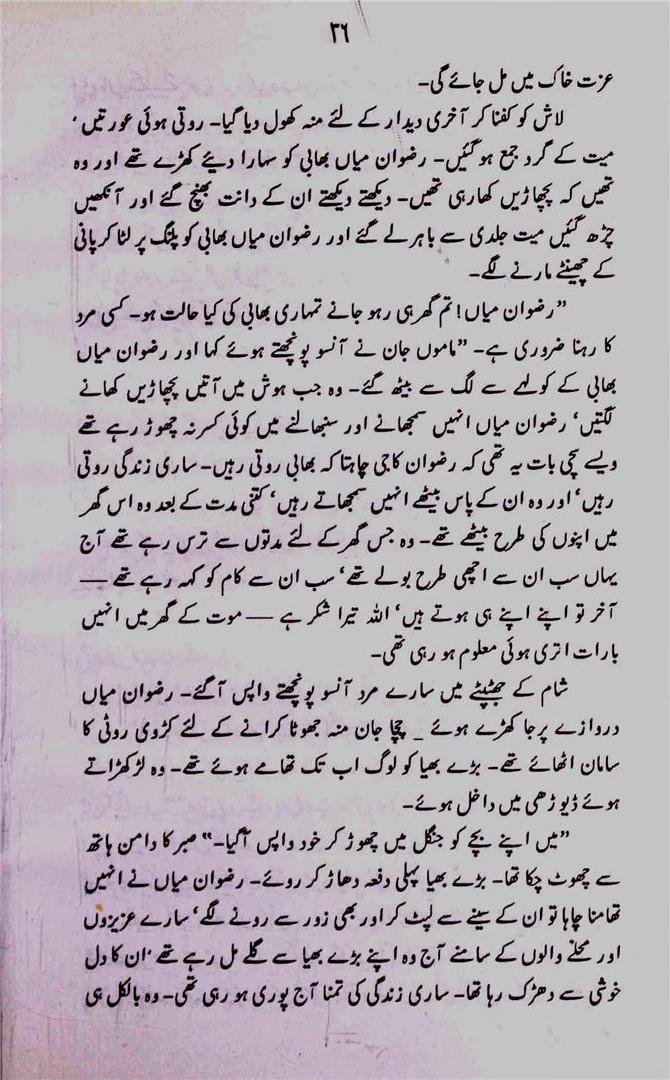 ۳۶
عزت خاک میں مل جائے گی۔
لاش کو کفنا کر آخری دیدار کے لئے منہ کھول دیا گیا۔ روتی ہوئی عورتیں ٬
میت کے گرد جمع ہو گئیں۔ رضوان میاں بھابی کو سہارا دیئے کھڑے تھے اور وہ
تھیں کہ پچھاڑیں کھا رہی تھیں۔ دیکھتے دیکھتے ان کے دانت بھنچ گئے اور آنکھیں
چڑھ گئیں میت جلدی سے باہر لے گئے اور رضوان میاں بھابی کو پلنگ پر لٹا کر پانی
کے چھینٹے مارنے لگے۔
”رضوان میاں! تم گھر ہی رہو جانے تمہاری بھابی کی کیا حالت ہو۔ کسی مرد
کا رہنا ضروری ہے۔ ”ماموں جان نے آنسو پونچھتے ہوئے کہا اور رضوان میاں
بھابی کے کولہے سے لگ سے بیٹھ گئے۔ وہ جب ہوش میں آتیں پچھاڑیں کھانے
لگتیں‘ رضوان میاں انہیں سمجھانے اور سنبھالنے میں کوئی کسر نہ چھوڑ رہے تھے
ویسے سچی بات یہ تھی کہ رضوان کا جی چاہتا کہ بھابی روتی رہیں۔ ساری زندگی روتی
رہیں‘ اور وہ ان کے پاس بیٹھے انہیں سمجھاتے رہیں‘ کتنی مدت کے بعد وہ اس گھر
میں اپنوں کی طرح بیٹھے تھے۔ وہ جس گھر کے لئے مدتوں سے ترس رہے تھے آج
یہاں سب ان سے اچھی طرح بولے تھے‘ سب ان سے کام کو کہہ رہے تھے —
آخر تو اپنے اپنے ہی ہوتے ہیں‘ اللہ تیرا شکر ہے — موت کے گھر میں انہیں
بارات اتری ہوئی معلوم ہو رہی تھی۔
شام کے جھٹپٹے میں سارے مرد آنسو پونچھتے واپس آ گئے۔ رضوان میاں
دروازے پر جا کھڑے ہوئے _ چچا جان منہ جھوٹا کرانے کے لئے کڑوی روٹی کا
سامان اٹھائے تھے۔ بڑے بھیا کو لوگ اب تک تھامے ہوئے تھے۔ وہ لڑکھڑاتے
ہوئے ڈیوڑھی میں داخل ہوئے۔
”میں اپنے بچے کو جنگل میں چھوڑ کر خود واپس آ گیا۔“ صبر کا دامن ہاتھ
سے چھوٹ چکا تھا۔ بڑے بھیا پہلی دفعہ دھاڑ کر روئے۔ رضوان میاں نے انہیں
تھامنا چاہا تو ان کے سینے سے لپٹ کر اور بھی زور سے رونے لگے‘ سارے عزیزوں
اور محلے والوں کے سامنے آج وہ اپنے بڑے بھیا سے گلے مل رہے تھے ٬ان کا دل
خوشی سے دھڑک رہا تھا۔ ساری زندگی کی تمنا آج پوری ہو رہی تھی۔ وہ بالکل ہی